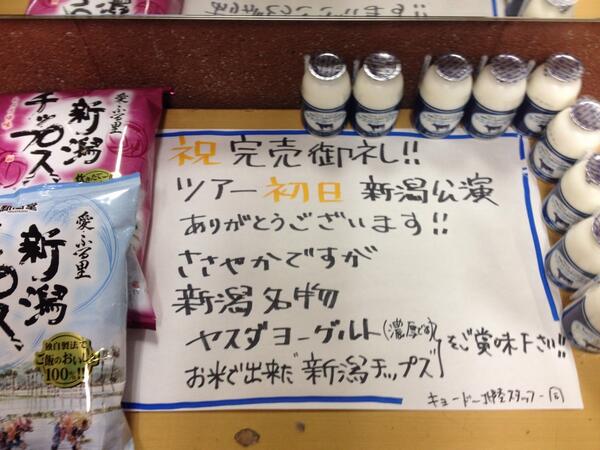 祝 完売御礼!!
ツアー初日 新潟公演
ありがとうございます!!
ささやかですが
新潟名物
ヤスダヨーグルト(濃厚です)
お米で出来た"新潟チップス"
をご賞味下さい!!
キョードー北陸スタッフ一同
愛ふる里
新潟
チップス
愛ふる里
新潟
チップス
独自製法で
ご飯のおいしさ
100%!!